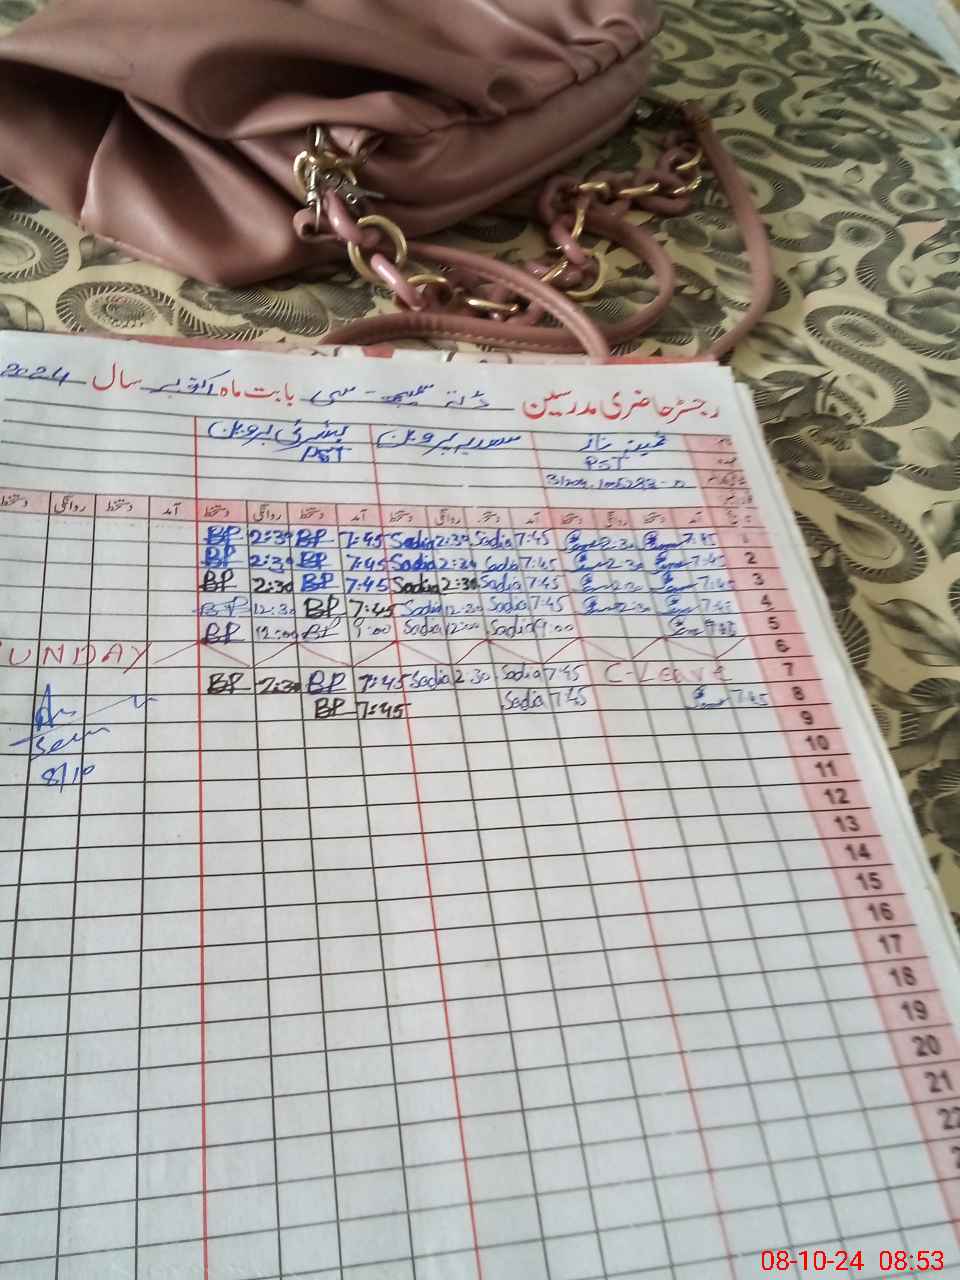 رجسٹر حاضری مدرسین بابت ماہ اکتوبر سال 2024
ثمینہ ناز سعدیہ پروین بشریٰ پروین
PST PST
آمد دستخط روانگی دستخط آمد دستخط روانگی دستخط آمد دستخط روانگی دستخط آمد دستخط روانگی دستخط
1 7:45 2:30 7:45 Sadia 2:30 Sadia 7:45 BP 2:30 BP
2 7:45 2:30 7:45 Sadia 2:30 Sadia 7:45 BP 2:30 BP
3 7:45 2:30 7:45 Sadia 2:30 Sadia 7:45 BP 2:30 BP
4 7:45 2:30 7:45 Sadia 12:30 Sadia 7:45 BP 12:30 BP
5 9:00 Sadia 12:00 Sadia 9:00 BP 12:00 BP
6 SUNDAY
7 C-Leave 7:45 Sadia 2:30 Sadia 7:45 BP 2:30 BP
8 7:45 7:45 Sadia 7:45 BP
9
Seen
10
8/10
11
12
13
14
15
16
17
18
19
20
21
22
08-10-24 08:53